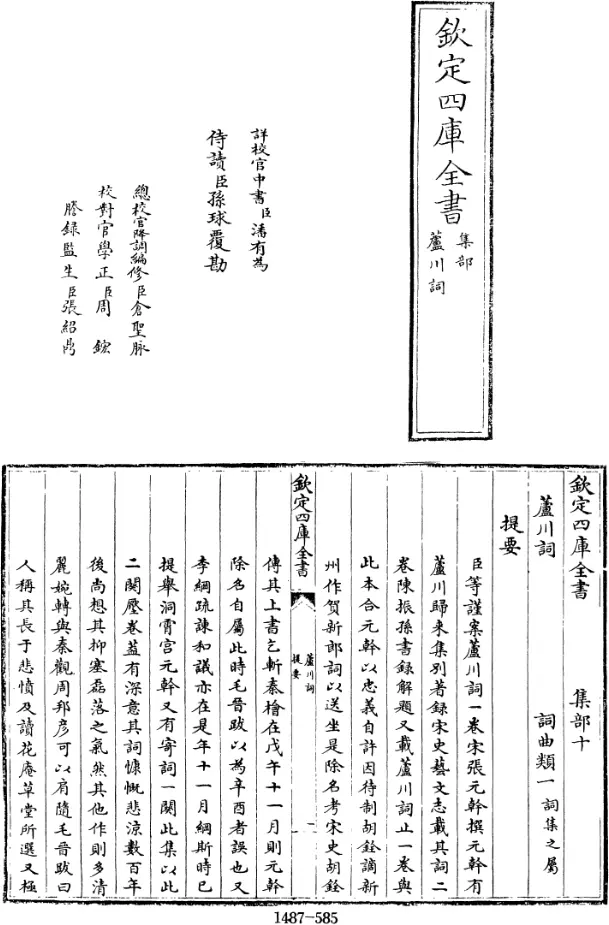 欽定四庫全書
集部
蘆川詞
詳校官中書臣潘有為
侍讀臣孫球覆勘
總校官降調編修臣倉聖脉
校對官學正臣周鋐
謄録監生臣張紹昺
欽定四庫全書 集部十
蘆川詞 詞曲類一 詞集之屬
提要
臣等謹案蘆川詞一卷宋張元幹撰元幹有
蘆川歸來集别著録宋史藝文志載其詞二
卷陳振孫書録解題又載蘆川詞止一卷與
此本合元幹以忠義自許因待制胡銓謫新
州作賀新郎詞以送坐是除名考宋史胡銓
欽定四庫全書
蘆川詞
提要
一
傳其上書乞斬秦檜在戊午十一月則元幹
除名自屬此時毛晉跋以為辛酉者誤也又
李綱疏諫和議亦在是年十一月綱斯時已
提舉洞霄宫元幹又有寄詞一闋此集以此
二闋壓卷蓋有深意其詞慷慨悲涼數百年
後尚想其抑塞磊落之氣然其他作則多清
麗婉轉與秦觀周邦彦可以肩隨毛晉跋曰
人稱其長于悲憤及讀花庵草堂所選又極
1487-585